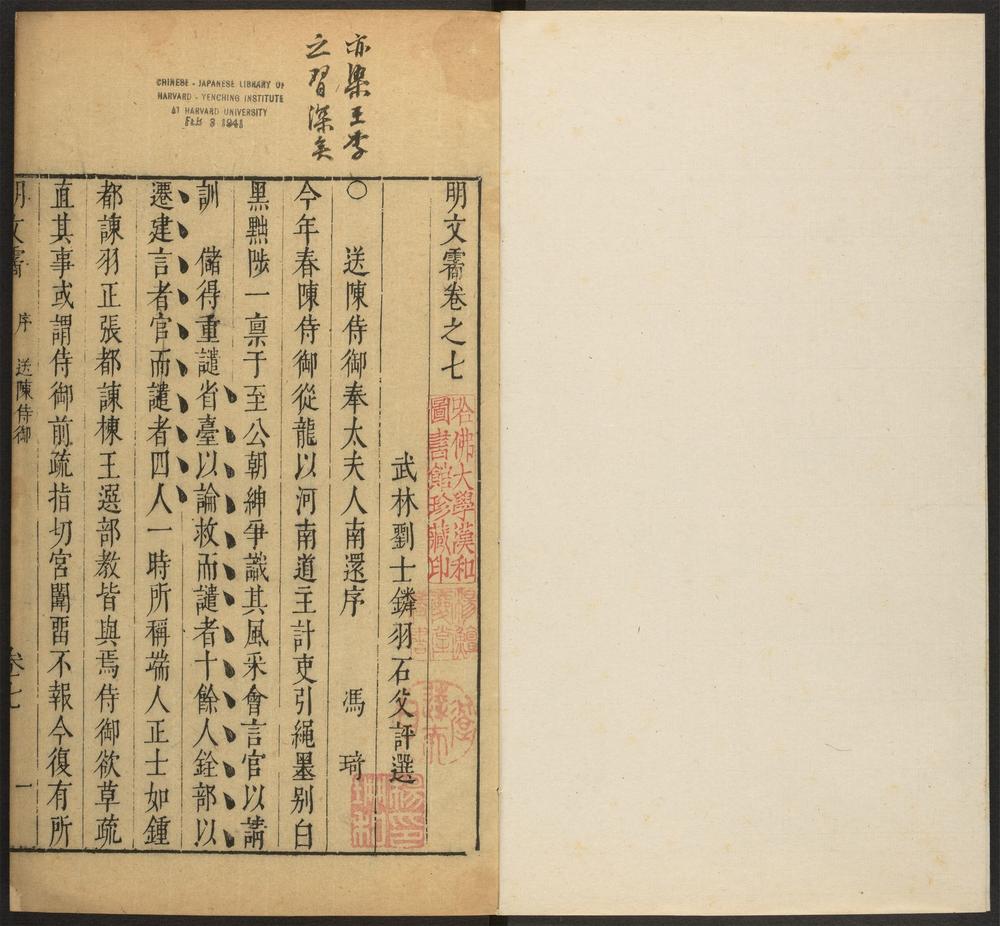 亦學王李
之習深矣
CHINESE - JAPANESE LIBRARY OF
HARVARD - YENCHING INSTITUTE
AT HARVARD UNIVERSITY
FEB 3 1941
明文霱卷之七
哈佛大學漢和
圖書館珍藏印
武林劉士鏻羽石父評選
○ 送陳侍御奉太夫人南還序 馮 琦
今年春陳侍御從龍以河南道主計吏引繩墨別白
黑黜陟一禀于至公朝紳爭識其風采會言官以請
訓 儲得重譴省臺以論救而譴者十餘人銓部以
遷建言者官而譴者四人一時所稱端人正士如鍾
都諫羽正張都諫棟王選部教皆與焉侍御欲草疏
直其事或謂侍御前疏指切宮闈畱不報今復有所
明文霱 序 送陳侍御 卷七 一